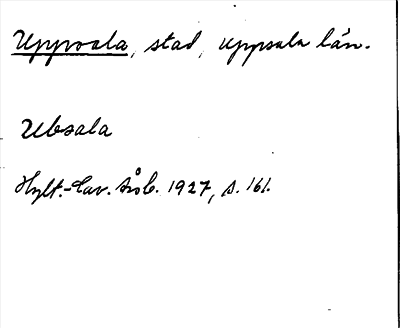 Uppsala, stad, Uppsala län.
Ubsala
Hylt.-Cav. 1927, s. 161.